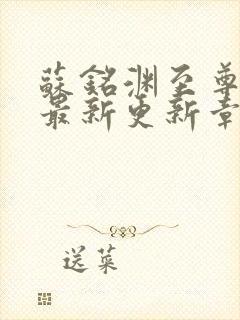 蘇銘渊至尊
最新更新章
送菜